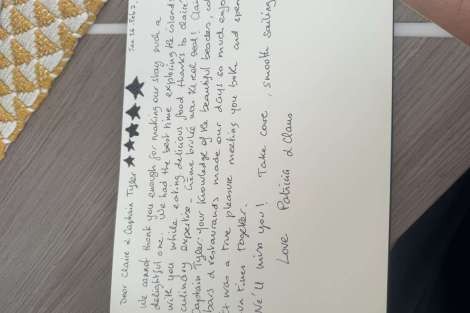 Jan 26 Feb 2,
Dear Claire & Captain Tyler ★★★★★
We cannot thank you enough for making our stay such a
delightful one. We had the best time exploring the islands
with you while eating delicious food thanks to Claire's
culinary expertise - Creme brulée was the real deal!
Captain Tyler your knowledge of the beautiful beaches,
bars & restaurants made our days so much
It was a true pleasure meeting you both and
fun times together.
We'll miss you! Take care, smooth sailing
Love Patricia & Claus